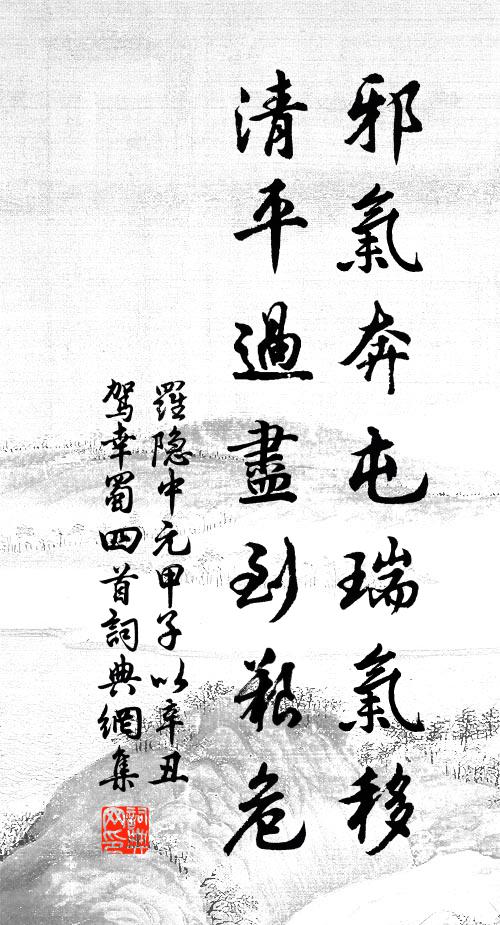 邪氣奔屯瑞氣移
清平過盡到艱危
羅隐中元甲子以辛丑
駕幸蜀四首詞典網集